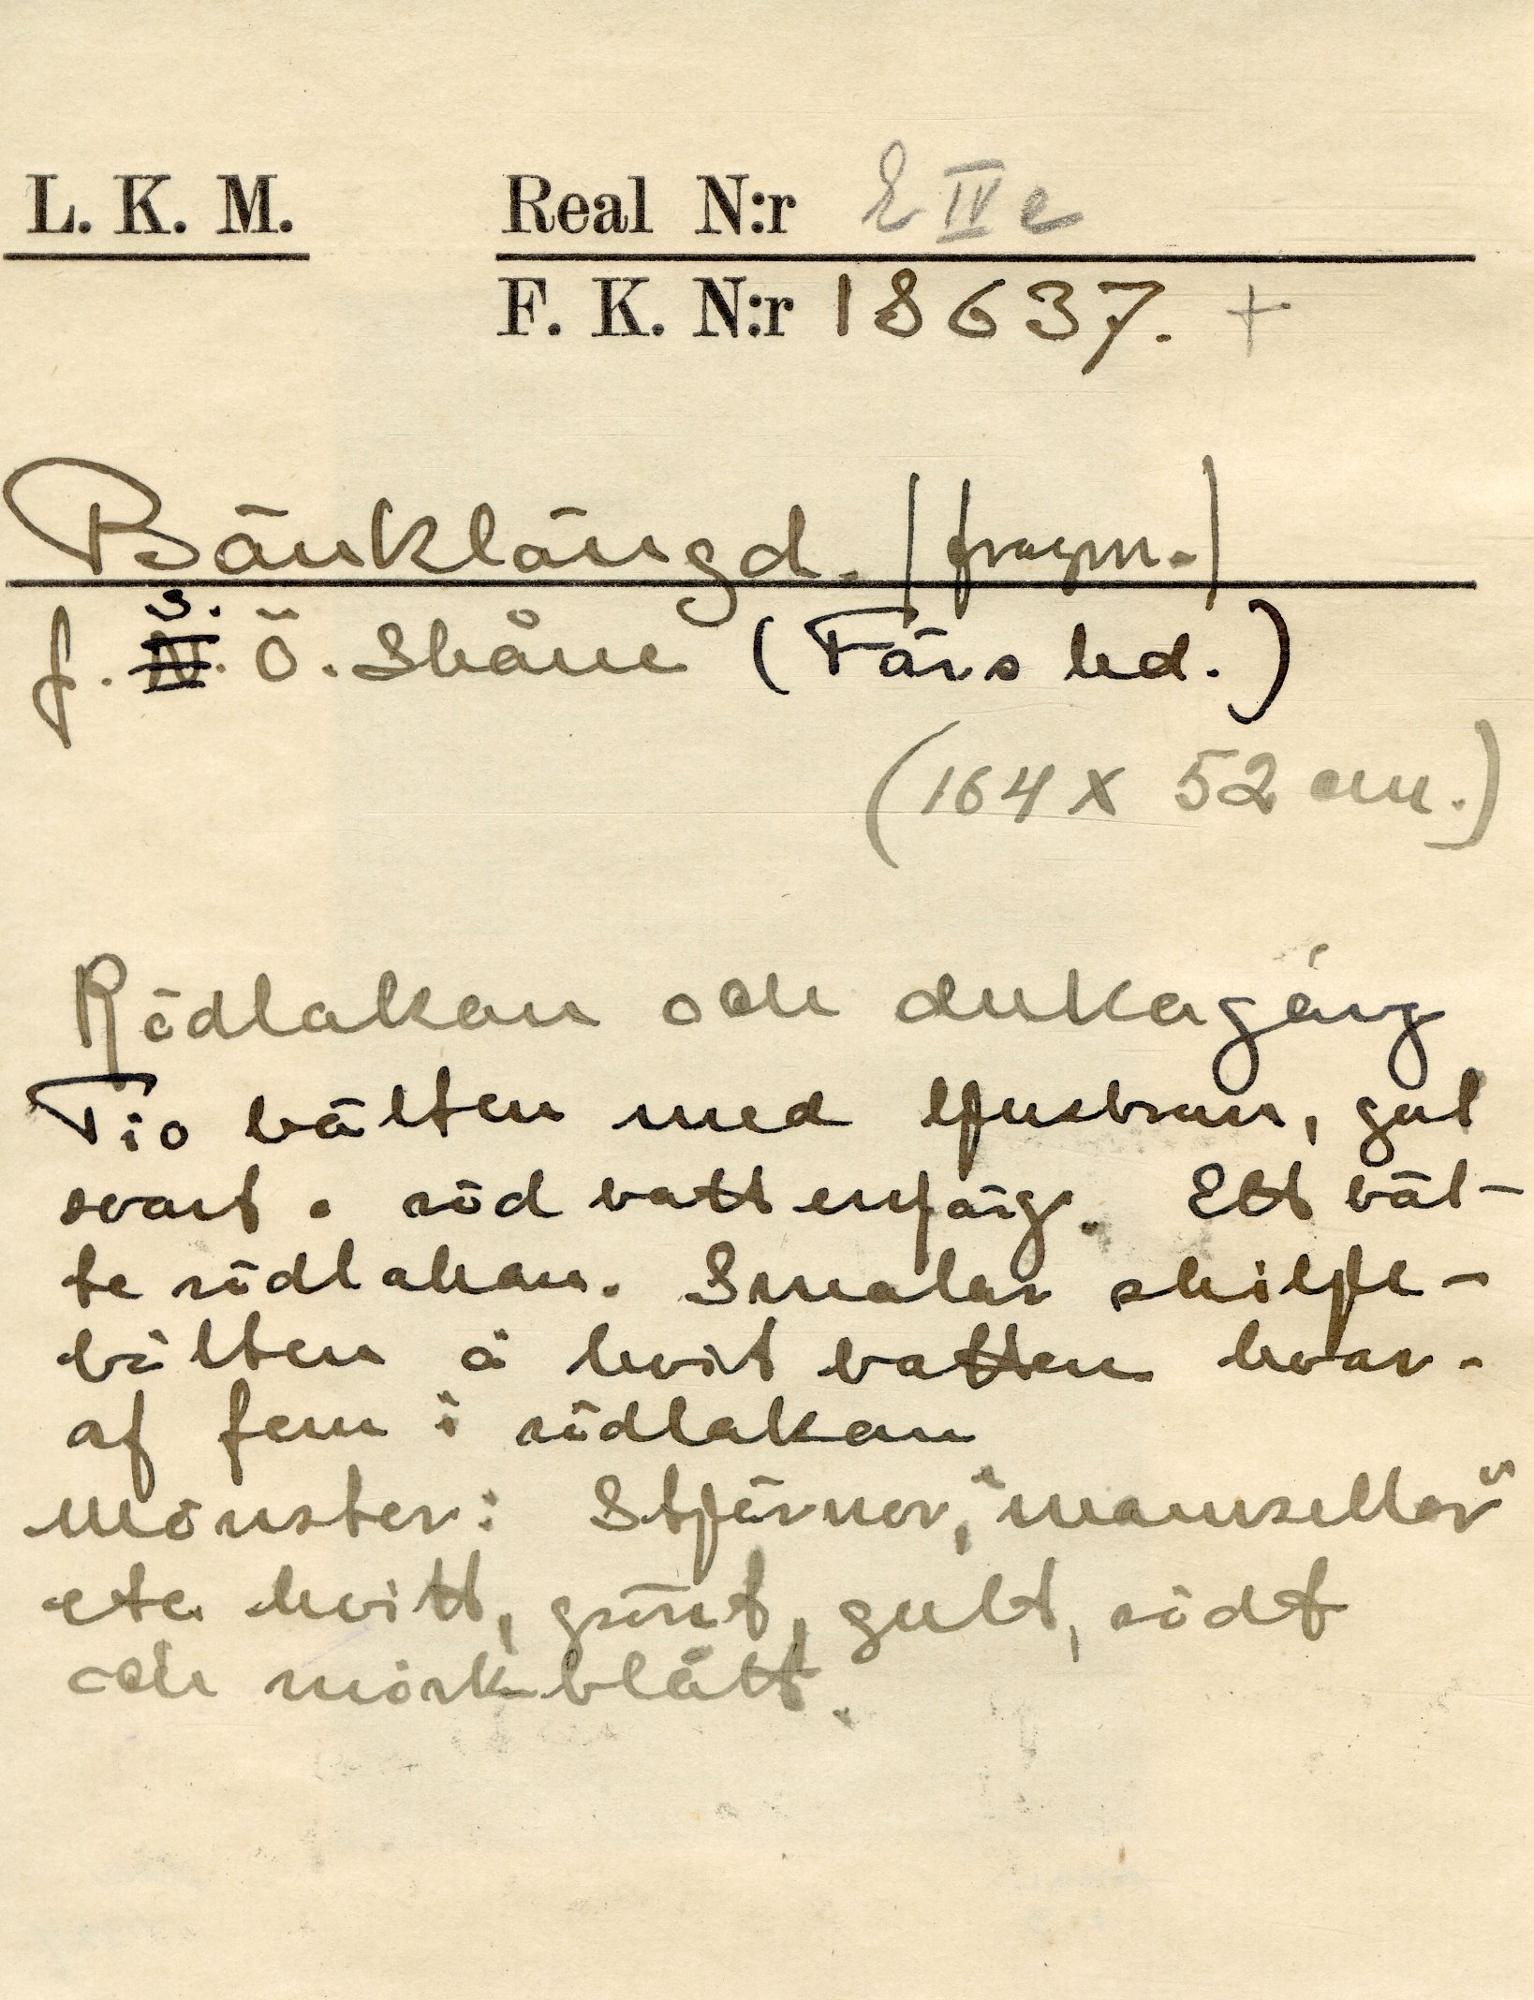 L. K. M. Real N:r E IV c
F. K. N:r 18637. +
Bänklängd. /fragm./
f. S. N. Ö. Skåne (Färs hd.)
(164 x 52 cm.)
Rödlakan och dukagång
Tio bälten med ljusbrun, gul
svart o röd bottenfärg. Ett bäl-
te rödlakan. Smalar skilje-
bälten å hvit botten hvar-
af fem i rödlakan
Mönster: Stjärnor, "mamsellor"
etc. hvitt, grönt, gult, rödt
och mörkblått.